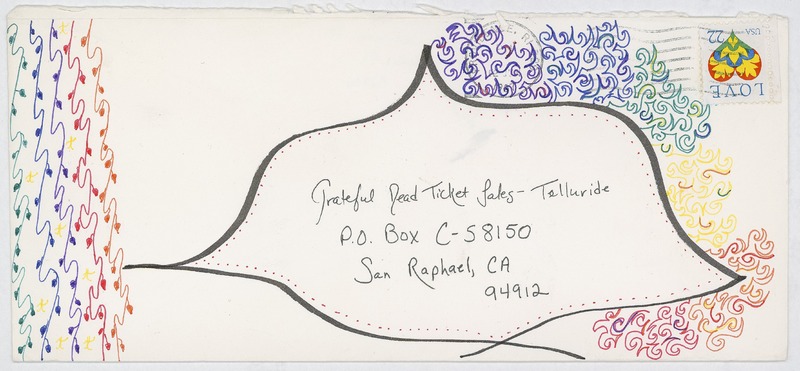 Grateful Dead Ticket Sales - Telluride
P.O. Box C-58150
San Raphael, CA
94912
USA 22
LOVE